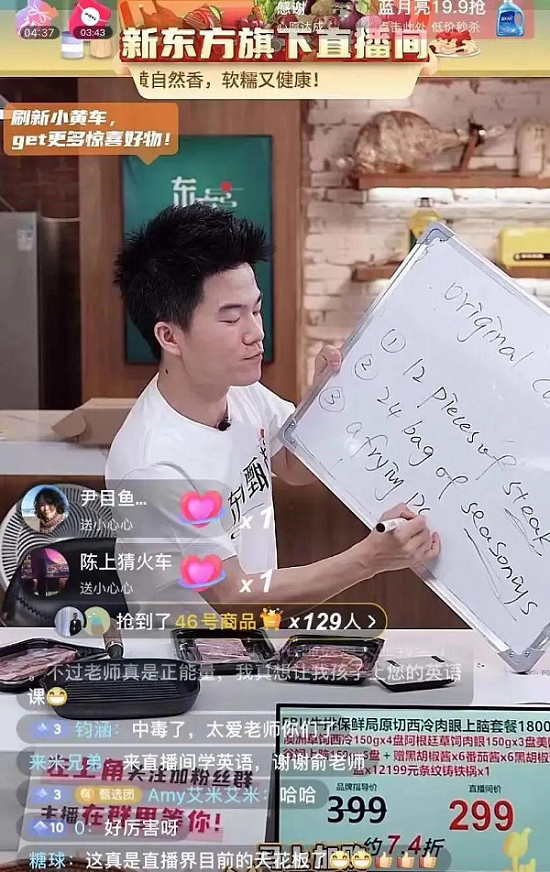 04:37
03:43
感谢
心愿达成
蓝月亮19.9抢
点击此处 低价秒杀
新东方旗下直播间
黄自然香，软糯又健康！
刷新小黄车，
get更多惊喜好物！
original
① 12 pieces of steak
② 24 bag of seasonings
③ a frying
尹目鱼...
送小心心
x 1
陈上猜火车
送小心心
x 1
抢到了 46号商品 x129人 >
不过老师真是正能量，我真想让我孩子上您的英语
课😁
3 钧涵：中毒了，太爱老师你们了
来米兄弟：来直播间学英语，谢谢俞老师
3 甄选团 Amy艾米艾米：哈哈
10 0：好厉害呀
糖球：这真是直播界目前的天花板了
左上角关注加粉丝群
主播在群里等你！
保鲜局原切西冷肉眼上脑套餐1800
澳洲草饲西冷150gx4盘阿根廷草饲肉眼150gx3盘
+ 赠黑胡椒酱x6番茄酱x6黑胡椒
12199元条纹铸铁锅x1
品牌指导价
399
直播间价
299
约7.4折